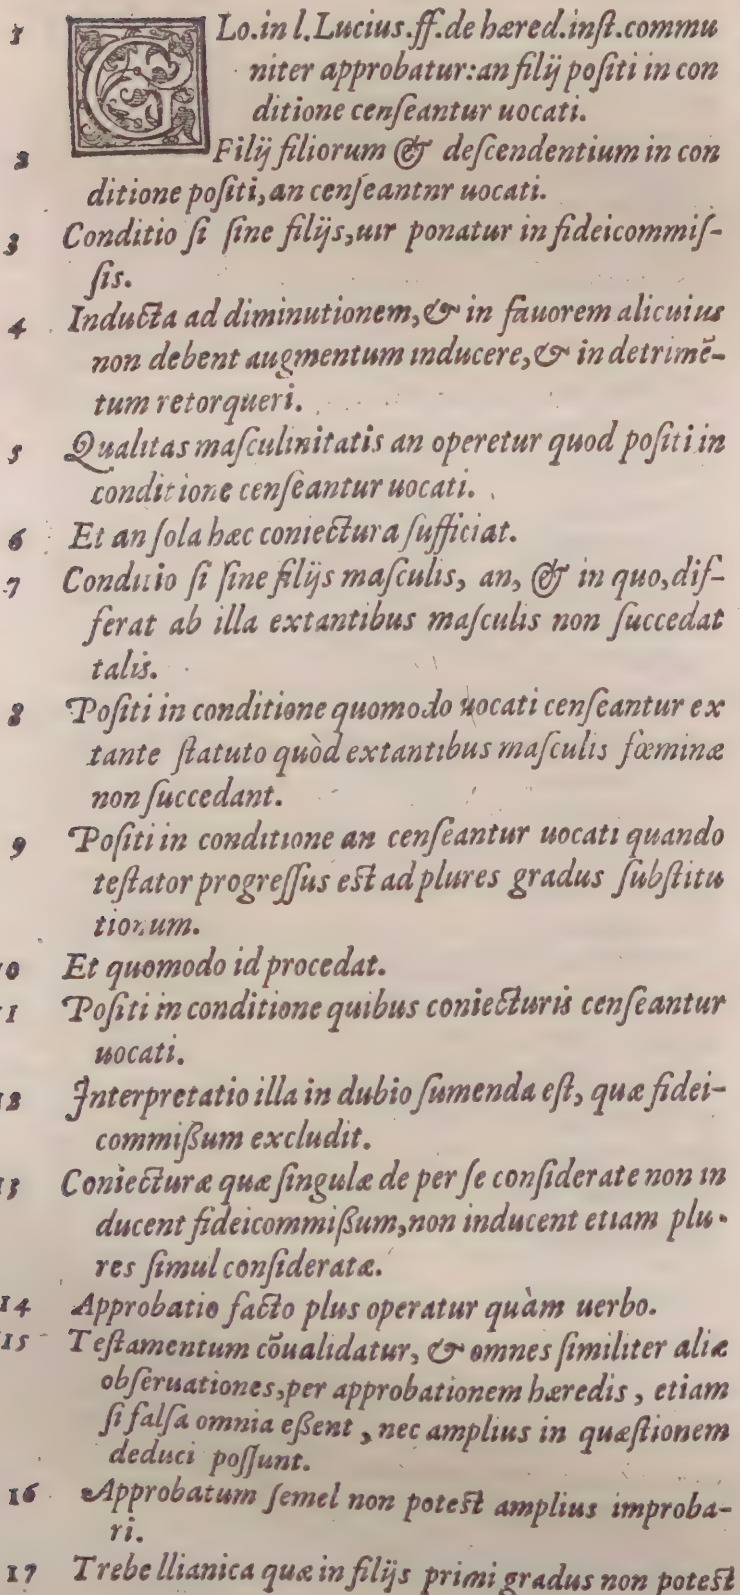 1 GLo.in l.Lucius.ff.de hæred.inst.commu
niter approbatur:an filij positi in con
ditione censeantur uocati.
2 Filij filiorum & descendentium in con
ditione positi,an censeantnr uocati.
3 Conditio si sine filijs,uir ponatur in fideicommis-
sis.
4 Inducta ad diminutionem,& in fauorem alicuius
non debent augmentum inducere,& in detrimẽ-
tum retorqueri.
5 Qualitas masculinitatis an operetur quod positi in
conditione censeantur uocati.
6 Et an sola hæc coniectura sufficiat.
7 Conditio si sine filijs masculis, an, & in quo,dif-
ferat ab illa extantibus masculis non succedat
talis.
8 Positi in conditione quomodo uocati censeantur ex
tante statuto quòd extantibus masculis fœminæ
non succedant.
9 Positi in conditione an censeantur uocati quando
testator progressus est ad plures gradus substitu
tionum.
10 Et quomodo id procedat.
11 Positi in conditione quibus coniecturis censeantur
uocati.
12 Interpretatio illa in dubio sumenda est, quæ fidei-
commißum excludit.
13 Coniecturæ quæ singulæ de per se considerate non in
ducent fideicommißum,non inducent etiam plu-
res simul consideratæ.
14 Approbatio facto plus operatur quàm uerbo.
15 Testamentum cõualidatur, & omnes similiter aliæ
obseruationes,per approbationem hæredis, etiam
si falsa omnia eßent, nec amplius in quæstionem
deduci possunt.
16 Approbatum semel non potest amplius improba-
ri.
17 Trebellianica quæ in filijs primi gradus non potest